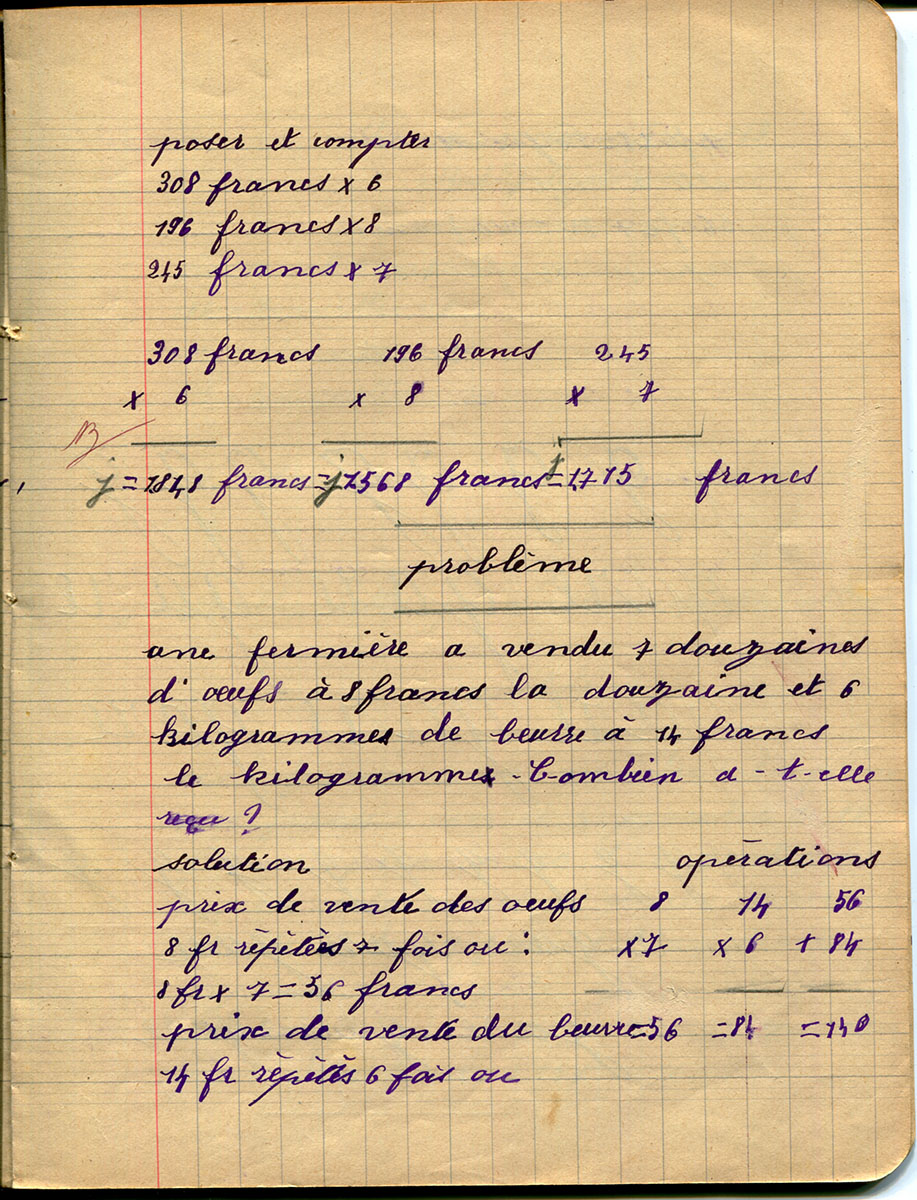 poser et compter
308 francs x 6
196 francs x 8
245 francs x 7
308 francs 196 francs 245
x 6 x 8 x 7
B
j = 1848 francs = j 1568 francs j = 1715 francs
problème
une fermière a vendu 7 douzaines
d'œufs à 8 francs la douzaine et 6
kilogrammes de beurre à 14 francs
le kilogramme. Combien a-t-elle
reçu ?
solution opérations
prix de vente des oeufs 8 14 56
8 fr répétés 7 fois ou : x7 x 6 + 84
8 fr x 7 = 56 francs
prix de vente du beurre =56 =84 =140
14 fr répétés 6 fois ou